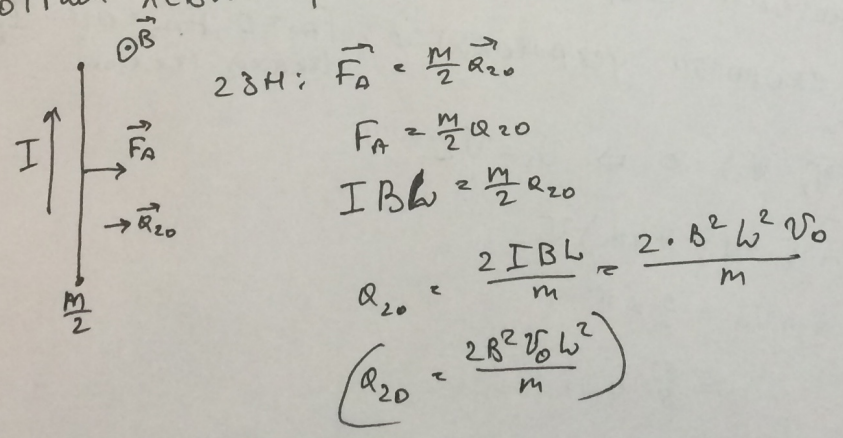 ⊙B⃗
I
F⃗_A
→ a⃗₂₀
m/2
2ЗН: F⃗_A = m/2 a⃗₂₀
F_A = m/2 a₂₀
IBL = m/2 a₂₀
a₂₀ = 2IBL/m = 2·B²L²V₀/m
(a₂₀ = 2B²V₀L²/m)